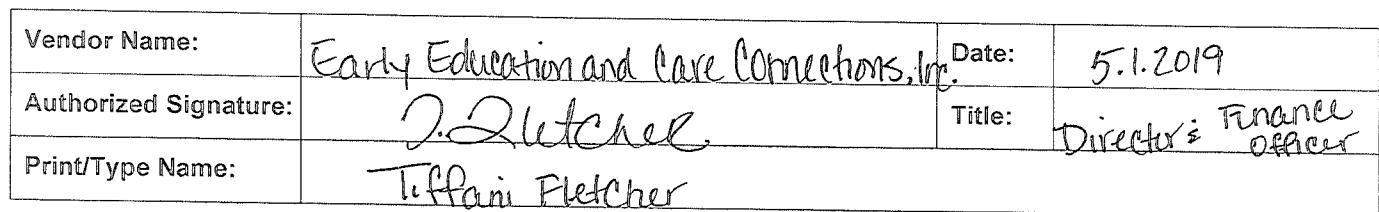 Vendor Name: Early Education and Care Connections, Inc. Date: 5.1.2019
Authorized Signature: T. Fletcher Title: Director & Finance Officer
Print/Type Name: Tiffani Fletcher